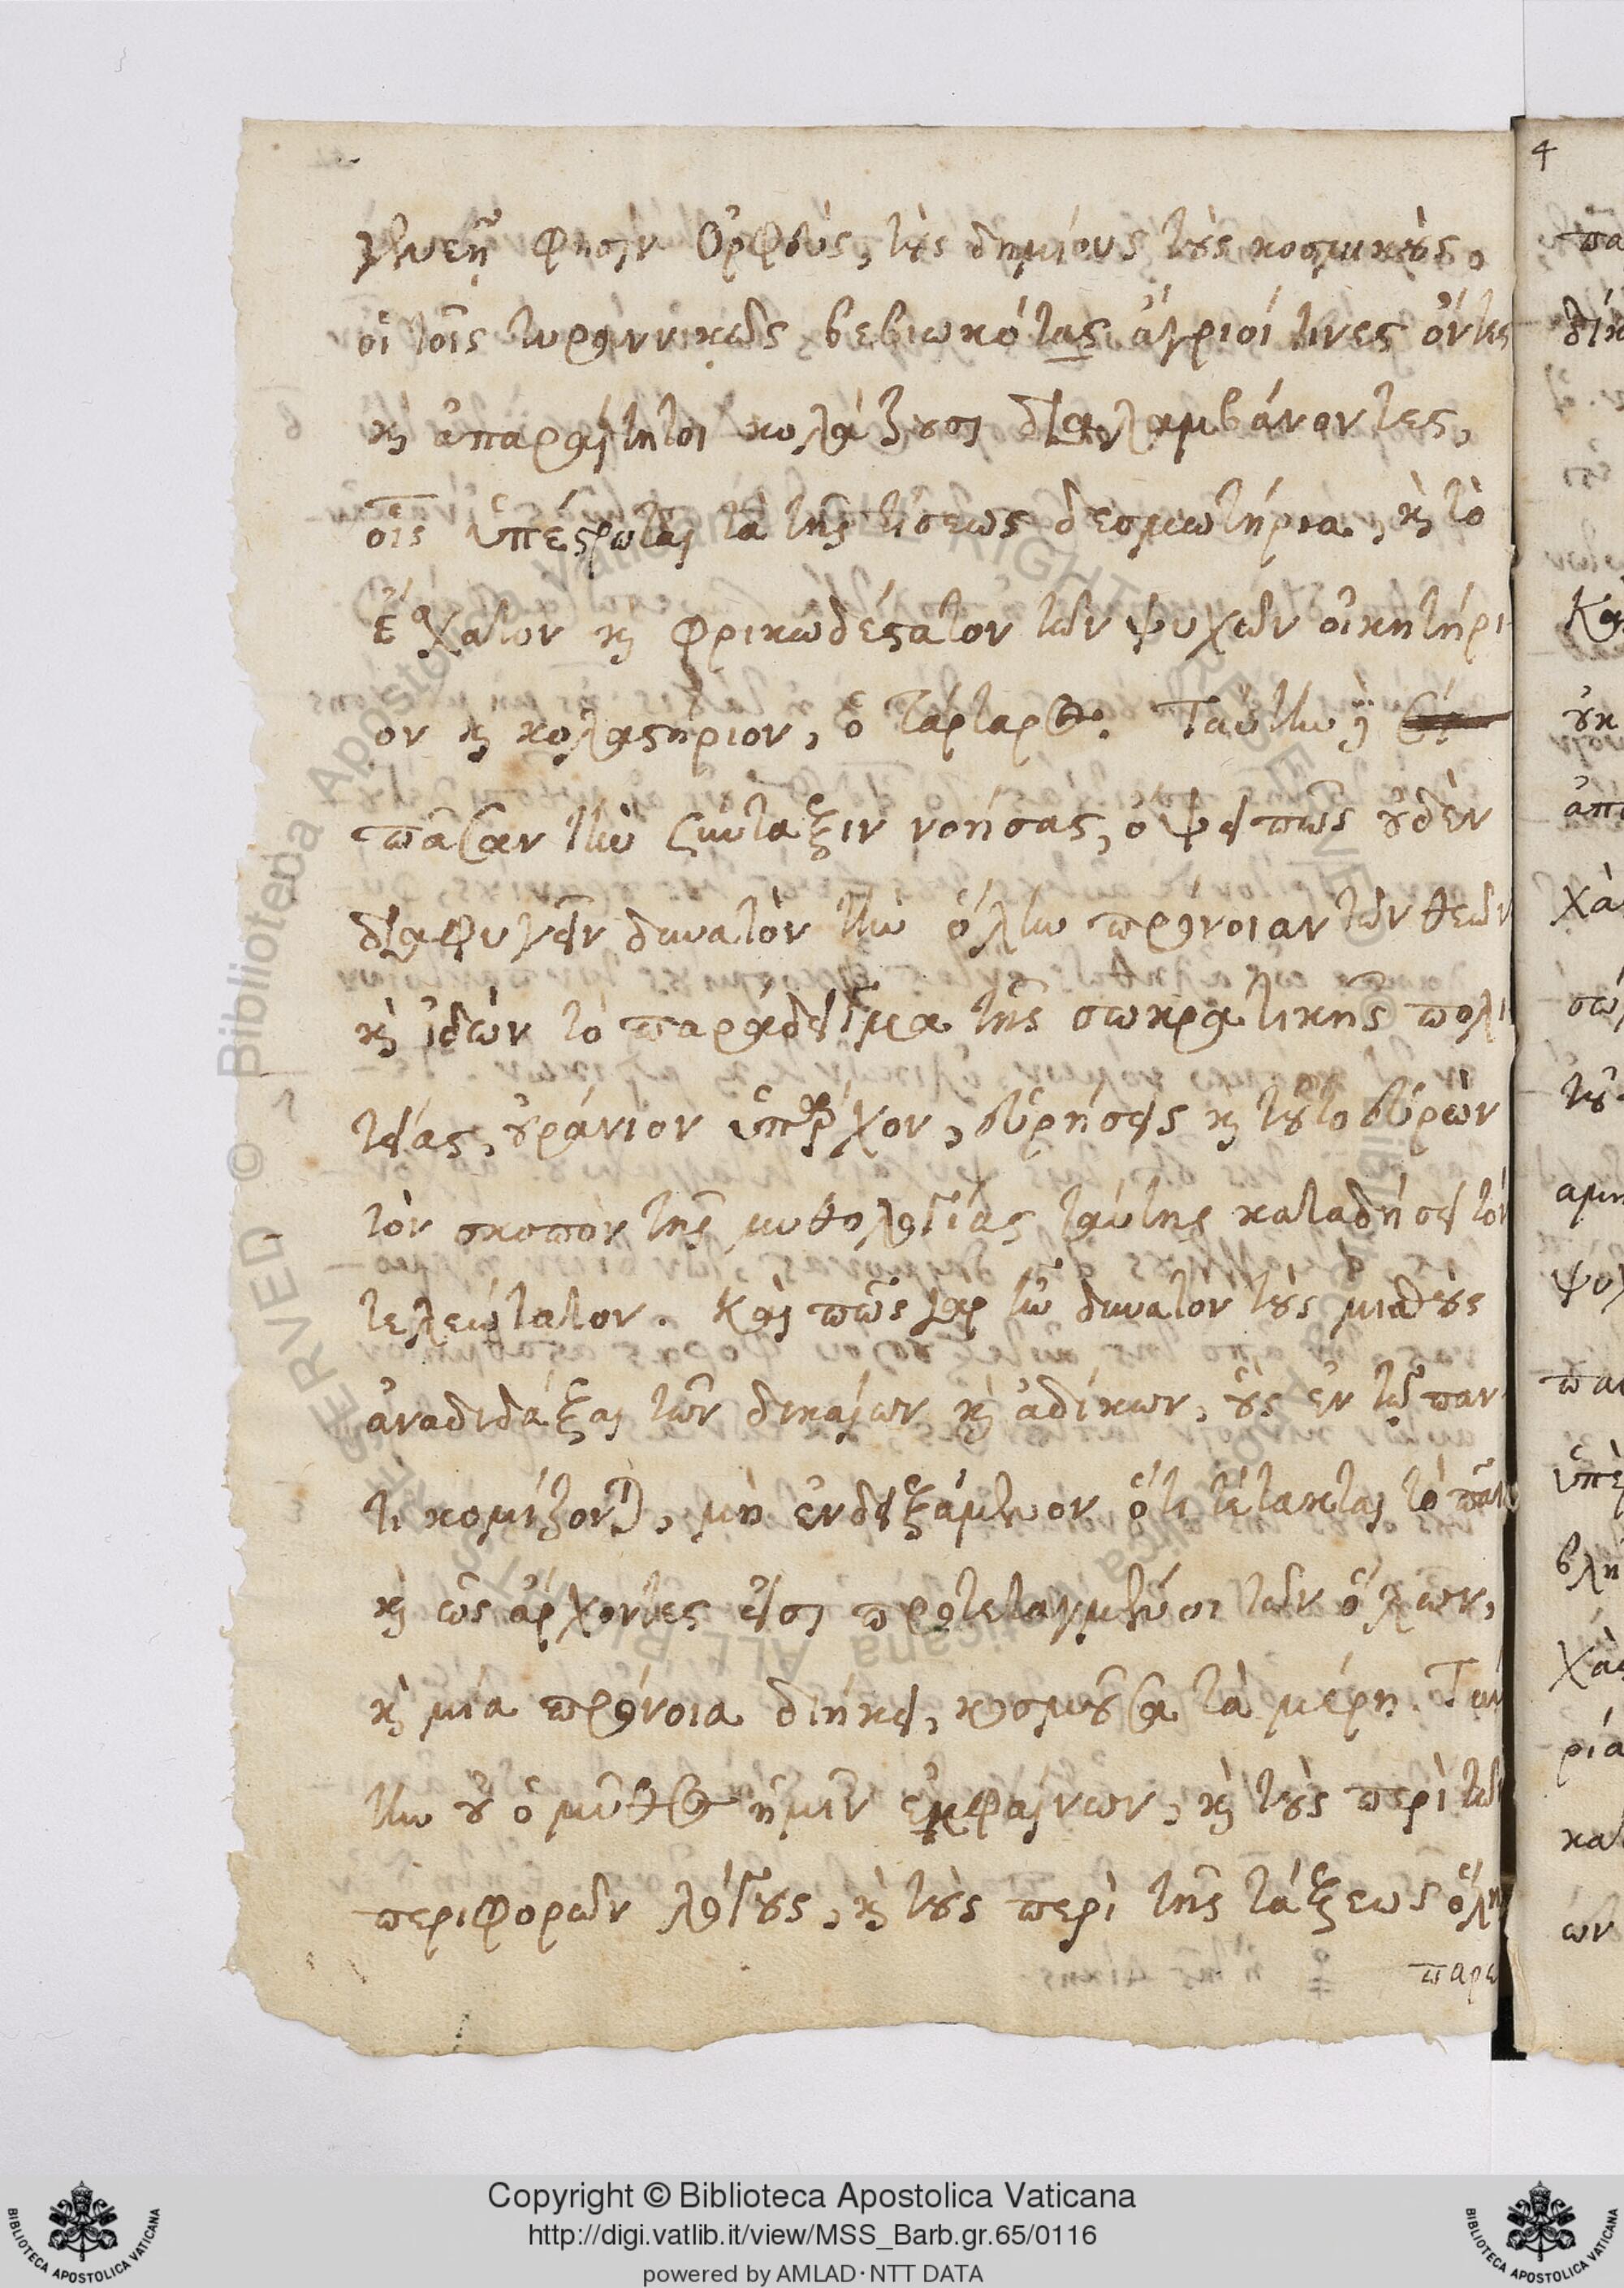 φησὶν Ὀρφεὺς, τοὺς δημίους τοὺς κοσμικοὺς,
οἳ τοῖς τυραννικῶς βεβιωκότας ἄγριοί τινες ὄντες
καὶ ἀπαραίτητοι κολάζουσι διαλαμβάνοντες,
οἷς ὑπέστρωται τὰ τῆς τίσεως δεσμωτήρια, καὶ τὸ
ἔσχατον καὶ φρικωδέστατον τῶν ψυχῶν οἰκητήρι
ον καὶ κολαστήριον, ὁ τάρταρος. Ταύτην
πᾶσαν τὴν σύνταξιν νοήσας, ὄψει πῶς οὐδὲν
διαφυγεῖν δυνατὸν τὴν ὅλην πρόνοιαν τῶν θεῶν
καὶ ἰδὼν τὸ παράδειγμα τῆς σωκρατικῆς πολι
τείας, οὐράνιον ὑπάρχον, εὑρήσεις καὶ τοῦτο εὑρὼν
τὸν σκοπὸν τῆς μυθολογίας ταύτης καταδήσει τὸν
τελεώτατον. Καὶ πῶς γὰρ ἦν δυνατὸν τοὺς μισθοὺς
ἀναδιδάξαι τῶν δικαίων καὶ ἀδίκων, οὓς ἐν τῷ παν
τὶ κομίζονται, μὴ ἐνδειξάμενον ὅτι τέτακται τὸ πᾶν
καὶ ὡς ἄρχοντές εἰσι προτεταγμένοι τῶν ὅλων,
καὶ μία πρόνοια διήκει, κοσμοῦσα τὰ μέρη. Ταύ
την οὖ ὁ μῦθος ἡμῖν ἐμφαίνων, καὶ τοὺς περὶ τῶν
περιφορῶν λόγους, καὶ τοὺς περὶ τῆς τάξεως ὅλης
παρω
4
Copyright © Biblioteca Apostolica Vaticana
http://digi.vatlib.it/view/MSS_Barb.gr.65/0116
powered by AMLAD·NTT DATA